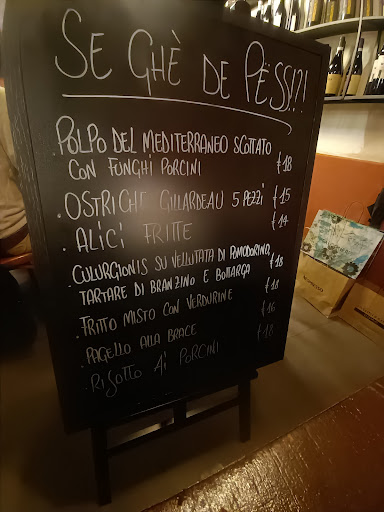 SE GHÈ DE PËSS!?!
POLPO DEL MEDITERRANEO SCOTTATO
CON FUNGHI PORCINI €18
. OSTRICHE GILLARDEAU 5 PEZZI €15
. ALICI FRITTE €14
. CULURGIONIS SU VELLUTATA DI POMODORINO,
TARTARE DI BRANZINO E BOTTARGA €18
. FRITTO MISTO CON VERDURINE €18
. PAGELLO ALLA BRACE €16
. RISOTTO AI PORCINI €18